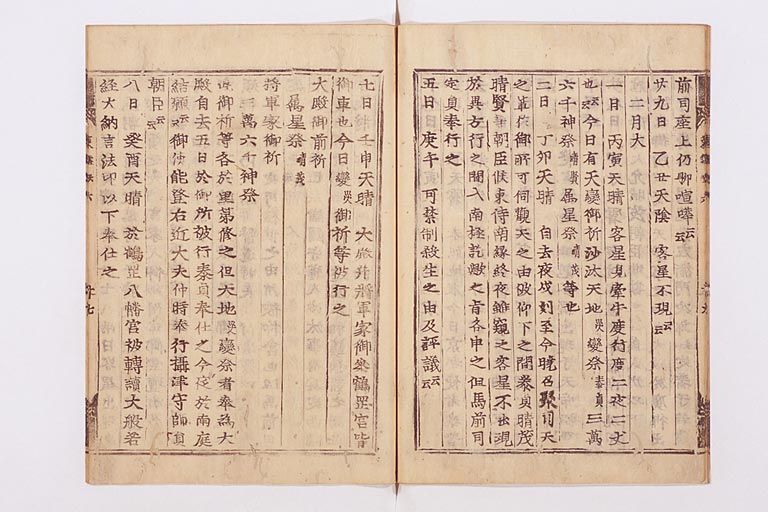 前司座上仍御喧嘩云云
廿九日 乙丑天陰 客星不現云云
二月大
一日 丙寅天晴 客星見牽牛度二夜二丈
也云云今日有天変御祈沙汰天地災変祭泰貞三万
六千神祭晴賢属星祭晴茂等也
二日 丁卯天晴 自去夜戌刻至今暁召聚司天
之輩於御所可伺観天之由被仰下之間泰貞晴茂
晴賢等朝臣候東侍南縁終夜雖窺之客星不出現
於異方行之間入南極訖歟之旨各申之但馬前司
定員奉行之
五日 庚午 可禁制殺生之由及評議云云
七日 壬申天晴 大殿并将軍家御参鶴岡宮皆
御車也今日変災御祈等被行之
大殿御前祈
属星祭晴茂
将軍家御祈
三万六千神祭
御祈等各於里第修之但天地災変祭者奉為大
殿自去五日於御所被行泰貞奉仕之今夜於南庭
結願云云御使能登右近大夫仲時奉行摂津守師員
朝臣云云
八日 癸酉天晴 於鶴岡八幡宮被転読大般若
経大納言法印以下奉仕之